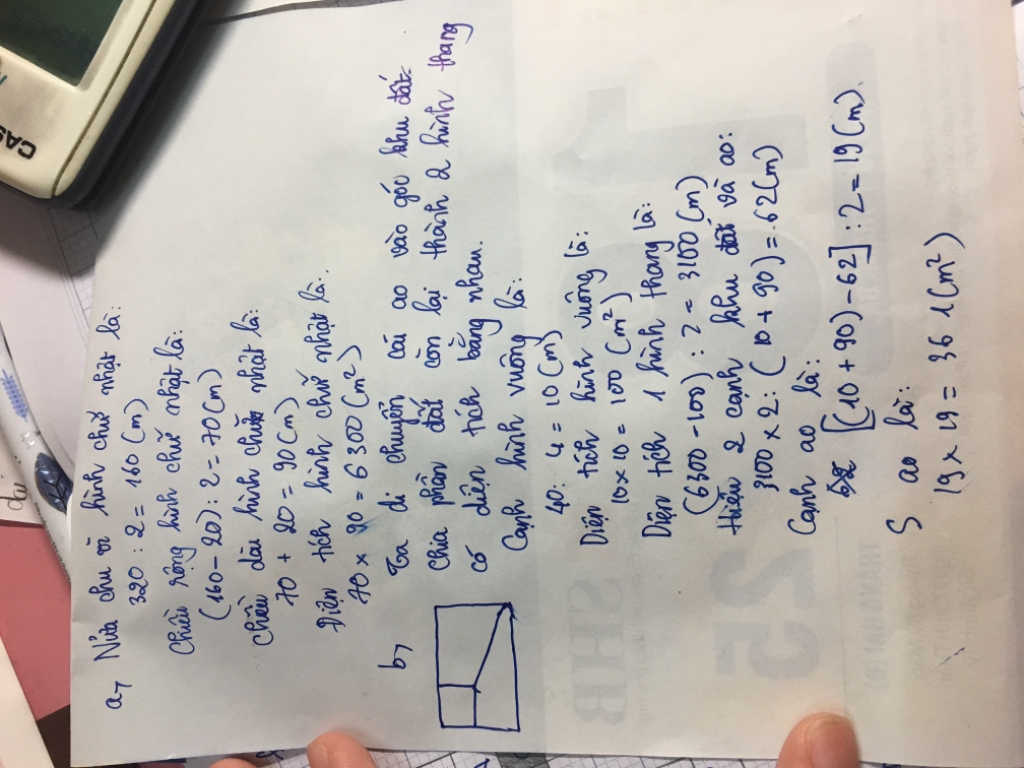 a, Nửa chu vi hình chữ nhật là:
320 : 2 = 160 (m)
Chiều rộng hình chữ nhật là:
(160 - 20) : 2 = 70 (m)
Chiều dài hình chữ nhật là:
70 + 20 = 90 (m)
Diện tích hình chữ nhật là:
70 x 90 = 6300 (m²)
b, Ta di chuyển cái ao vào góc khu đất.
Chia phần đất còn lại thành 2 hình thang
có diện tích bằng nhau.
Cạnh hình vuông là:
40 : 4 = 10 (m)
Diện tích hình vuông là:
10 x 10 = 100 (m²)
Diện tích 1 hình thang là:
(6300 - 100) : 2 = 3100 (m)
Hiệu 2 cạnh khu đất và ao:
3100 x 2 : (10 + 90) = 62 (m)
Cạnh ao là:
[(10 + 90) - 62] : 2 = 19 (m).
S ao là:
19 x 19 = 361 (m²)
CAS
SHB
25